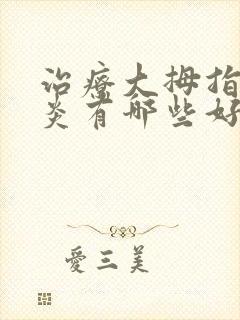 治疗大拇指
炎有哪些好
愛三美